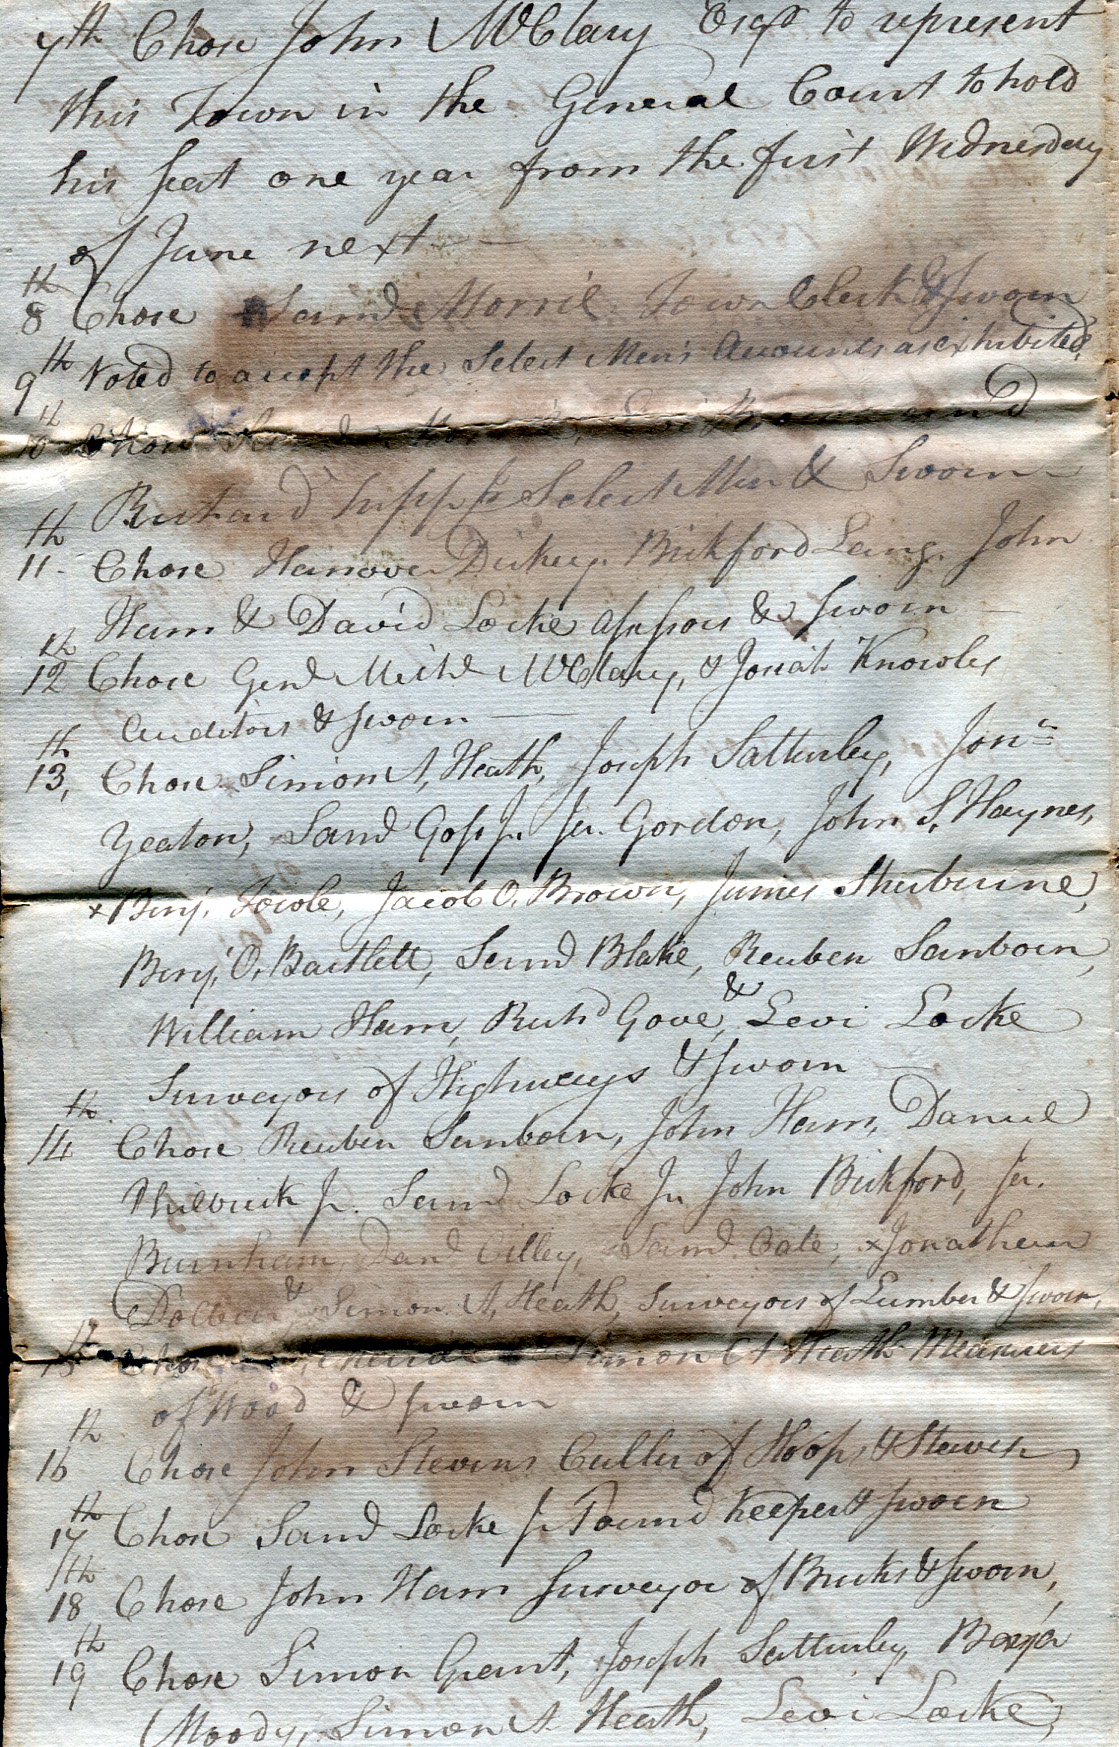 7th Chose John McClary Esqr to represent
this Town in the General Court to hold
his seat one year from the first Wednesday
of June next
8th Chose Saml Morril Town Clerk & sworn
9th Voted to accept the Select Mens Accounts as exhibited,
10th Chose
Richard Tripp Jr Select Men & Sworn
11th Chose Hanover Dickey. Bickford Lang. John
Ham & David Locke assessors & sworn
12th Chose Genl Michl McClary, & Josiah Knowles
Auditors & sworn
13th, Chose Simion A, Heath, Joseph Satturley, Jonn
Yeaton, Saml Goss Jr. Jer. Gordon, John S, Haynes,
x Benj, Towle, Jacob O, Brown, James Sherburne,
Benj, O, Bartlett, Saml Blake, Reuben Sanborn,
William Ham, Richd Gove, & Levi Locke
Surveyors of Highways & sworn
14th Chose Reuben Sanborn, John Ham, Daniel
Philbrick Jr. Saml Locke Jr. John Bickford, Jer.
Burnham, Danl Cilley, Saml Cate, x Jonathan
Dolbear, & Simon A, Heath, Surveyors of Lumber & sworn,
15th Chose Simon A Heath Measurers
of Wood & sworn
16th Chose John Stevens Culler of Hoops & Staves
17th Chose Saml Locke Jr Pound Keeper & sworn
18th Chose John Ham Surveyor of Bricks & sworn,
19th Chose Simon Grant, Joseph Satturley, Benja
Moody, Simon A Heath, Levi Locke,